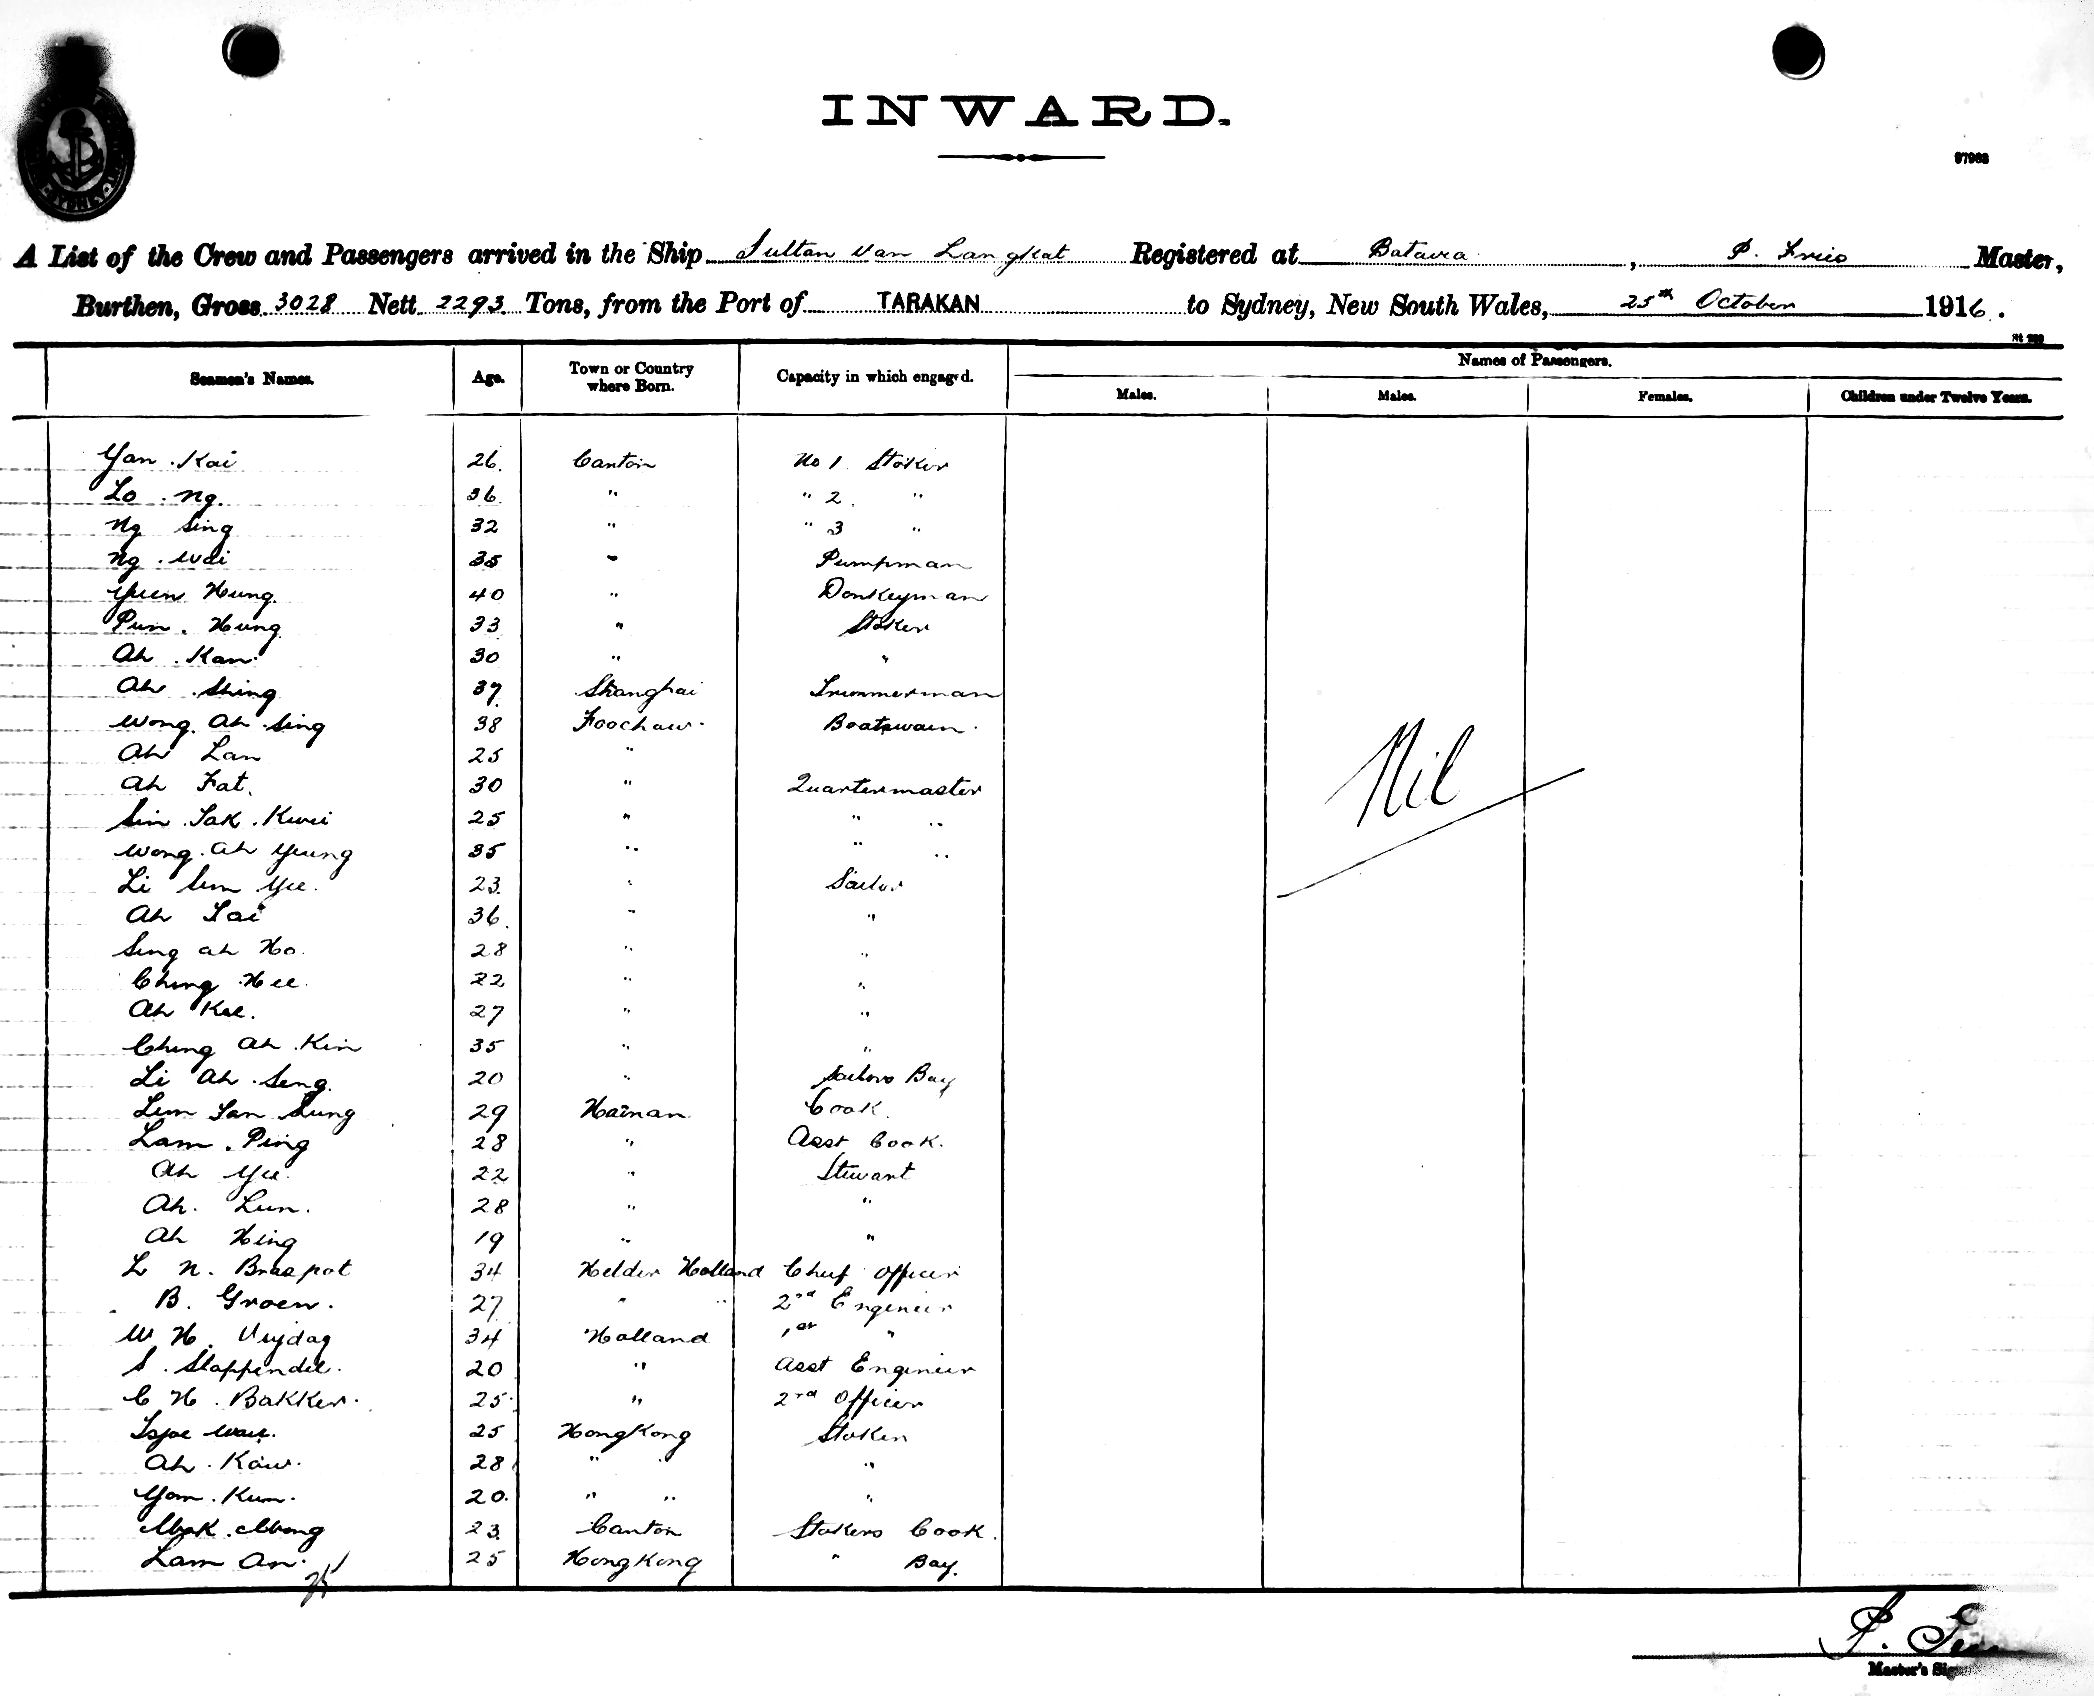 INWARD.
97963
A List of the Crew and Passengers arrived in the Ship Sultan van Langkat Registered at Batavia, P. Frico Master,
Burthen, Gross 3028 Nett 2293 Tons, from the Port of TARAKAN to Sydney, New South Wales, 25th October 1916.
Seamen's Names. Age. Town or Country where Born. Capacity in which engaged. Names of Passengers.
Males. Males. Females. Children under Twelve Years.
Yan Kai 26 Canton No 1 Stoker
Lo Ng. 36 " " 2 "
Ng Sing 32 " " 3 "
Ng Wai 35 " Pumpman
Yuen Hung 40 " Donkeyman
Pun Hung 33 " Stoker
Ah Kan 30 " "
Ah Shing 37 Shanghai Trimmerman
Wong Ah Sing 38 Foochaw Boatswain
Ah Lan 25 "
Ah Fat. 30 " Quartermaster
Sin Tak Kwei 25 " " "
Wong Ah Yeung 35 " " "
Li Sum Yee 23 " Sailor
Ah Tai 36 " "
Sing Ah Ho 28 " "
Ching Hee 22 " "
Ah Kee. 27 " "
Ching Ah Kin 35 " "
Li Ah Seng 20 " Sailors Boy
Lum San Sung 29 Hainan Cook
Lam Ping 28 " Asst Cook.
Ah Yee 22 " Stewart
Ah. Lun. 28 " "
Ah Hing 19 " "
L N. Braspot 34 Helder Holland Chief Officer
B. Groen. 27 " " 2nd Engineer
W H. Vrijdag 34 Holland 1st "
S. Slappendel. 20 " Asst Engineer
C H. Bakker. 25 " 2nd Officer
Tsjoe Wau. 25 HongKong Stoker
Ah Kaw. 28 " "
Yom Kum. 20. " " "
Mok Mong 23 Canton Stokers Cook.
Lam An. 25 HongKong " Boy.
Nil
35
Master's